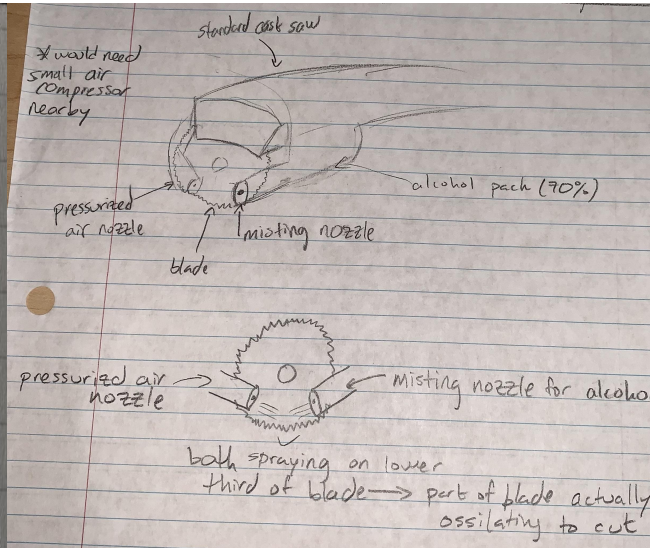 standard cast saw
* would need
small air
compressor
nearby
alcohol pack (70%)
pressurized
air nozzle
misting nozzle
blade
pressurized air
nozzle
misting nozzle for alcoho
both spraying on lower
third of blade → part of blade actually
ossilating to cut